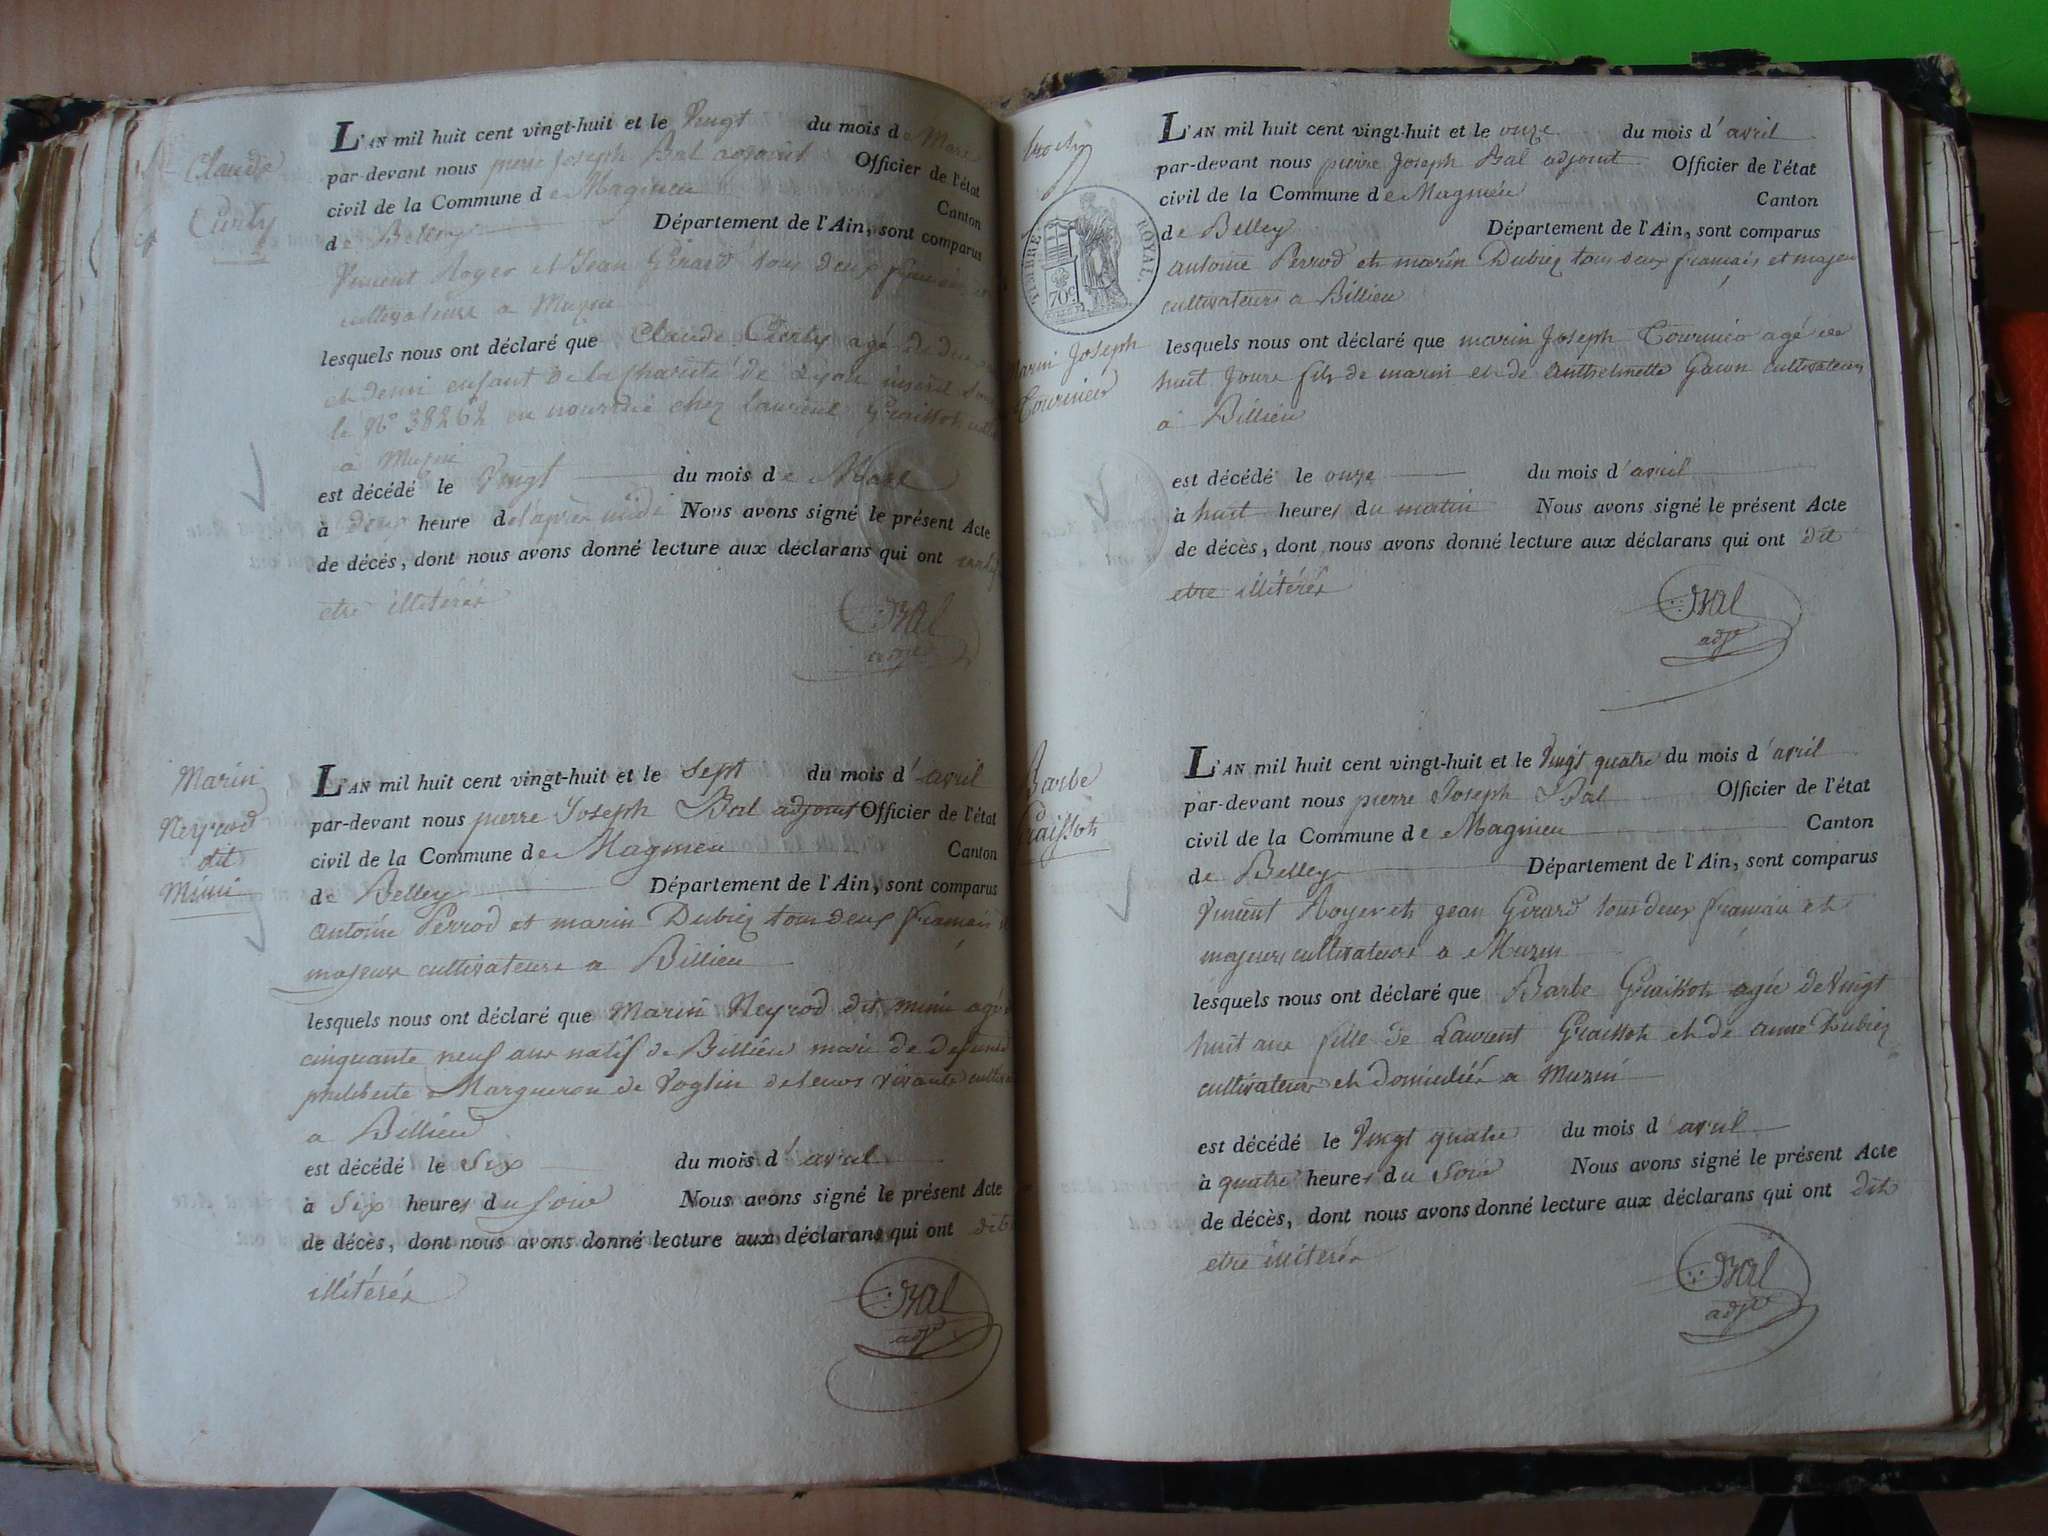 Claude
Curty
L'AN mil huit cent vingt-huit et le Vingt du mois de Mars
par-devant nous pierre Joseph Bal adjoint Officier de l'état
civil de la Commune de Magnieu Canton
de Belley Département de l'Ain, sont comparus
Vincent Royer et Jean Girard tous deux
cultivateurs a Muzin
lesquels nous ont déclaré que Claude Curty agé de deux
et demi enfant de la Charité de Lyon
le N° 38262 en nourrice chez Laurent Graisson
a Muzin
est décédé le Vingt du mois de Mars
à deux heure de l'après midi Nous avons signé le présent Acte
de décès, dont nous avons donné lecture aux déclarans qui ont
etre illiterés
Bal
adjt
Marin
Neyrod
dit
Mimi
L'AN mil huit cent vingt-huit et le sept du mois d'avril
par-devant nous pierre Joseph Bal adjoint Officier de l'état
civil de la Commune de Magnieu Canton
de Belley Département de l'Ain, sont comparus
antoine Perrod et marin Dubiez tous deux francais
majeurs cultivateurs a Billieu
lesquels nous ont déclaré que Marin Neyrod dit mimi agé
cinquante neuf ans natif de Billieu mari de defunte
philiberte Margueron de Voglin de leurs vivants
a Billieu
est décédé le six du mois d'avril
à six heures du soir Nous avons signé le présent Acte
de décès, dont nous avons donné lecture aux déclarans qui ont dit
illitérés
Bal
adjt
TIMBRE ROYAL
70c
Marin Joseph
Cournier
L'AN mil huit cent vingt-huit et le onze du mois d'avril
par-devant nous pierre Joseph Bal adjoint Officier de l'état
civil de la Commune de Magnieu Canton
de Belley Département de l'Ain, sont comparus
antoine Perrod et marin Dubiez tous deux francais et majeurs
cultivateurs a Billieu
lesquels nous ont déclaré que marin Joseph Cournier agé de
huit jours fils de marin et de anthelmette cultivateurs
a Billieu
est décédé le onze du mois d'avril
à huit heures du matin Nous avons signé le présent Acte
de décès, dont nous avons donné lecture aux déclarans qui ont dit
etre illitérés
Bal
adjt
Barbe
Graisson
L'AN mil huit cent vingt-huit et le Vingt quatre du mois d'avril
par-devant nous pierre Joseph Bal Officier de l'état
civil de la Commune de Magnieu Canton
de Belley Département de l'Ain, sont comparus
Vincent Royer et jean Girard tous deux francais et
majeurs cultivateurs a Muzin
lesquels nous ont déclaré que Barbe Graisson agée de Vingt
huit ans fille de Laurent Graisson et de anne Dubiez
cultivateurs et domiciliés a Muzin
est décédé le Vingt quatre du mois d'avril
à quatre heures du Soir Nous avons signé le présent Acte
de décès, dont nous avons donné lecture aux déclarans qui ont dit
etre illiterés
Bal
adjt